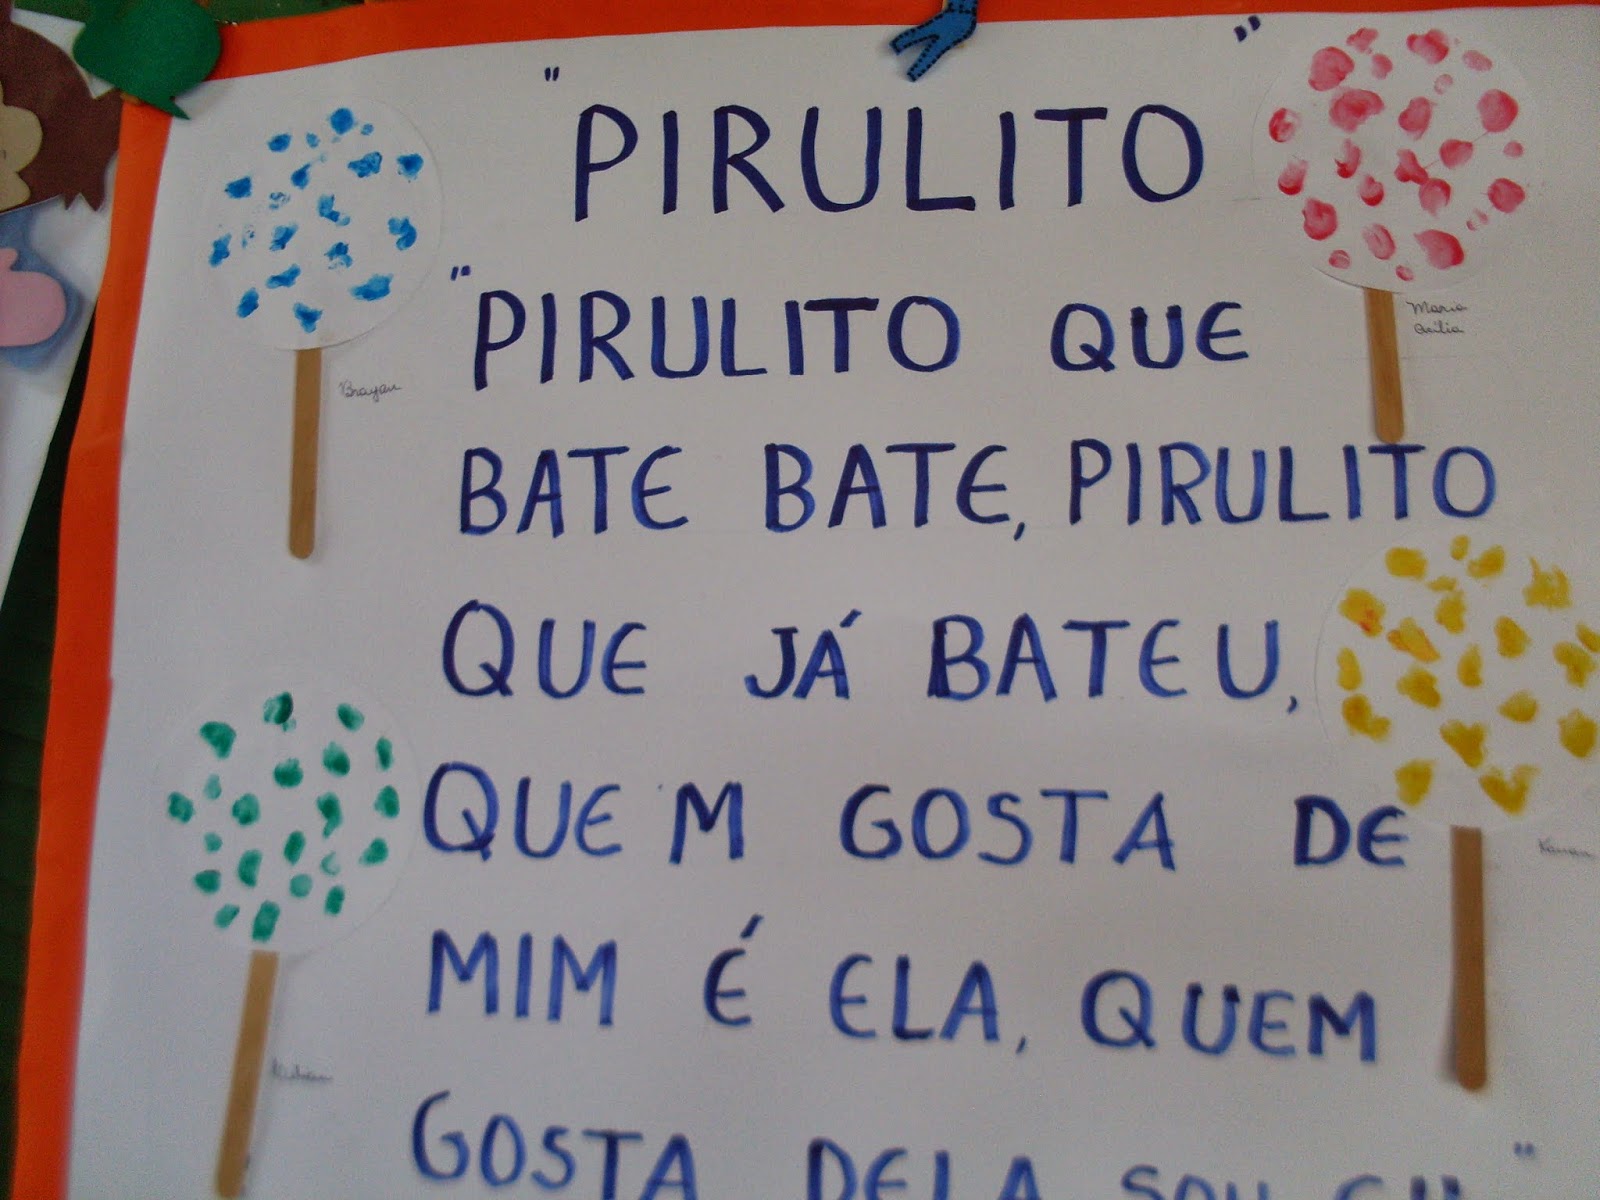 "PIRULITO"
"PIRULITO QUE
BATE BATE, PIRULITO
QUE JÁ BATEU,
QUEM GOSTA DE
MIM É ELA, QUEM
GOSTA DELA SOU EU"
Brayan
Maria
Kauan